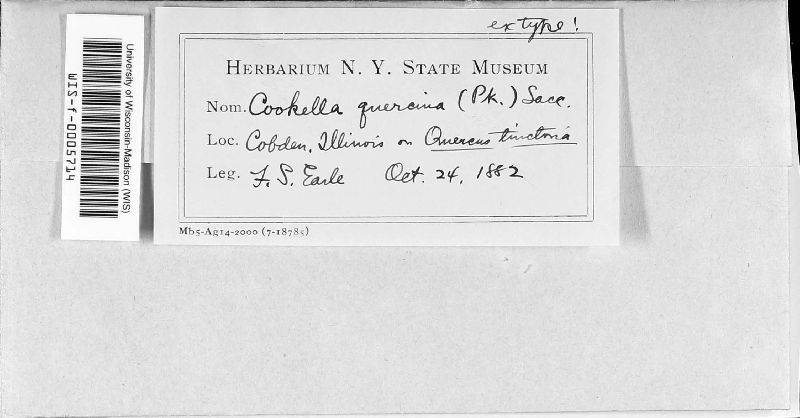 ex type!
HERBARIUM N. Y. STATE MUSEUM
Nom. Cookella quercina (Pk.) Sacc.
Loc. Cobden, Illinois on Quercus tinctoria
Leg. F. S. Earle Oct. 24, 1882
Mb5-Ag14-2000 (7-18785)
University of Wisconsin-Madison (WIS)
WIS-f-0005714